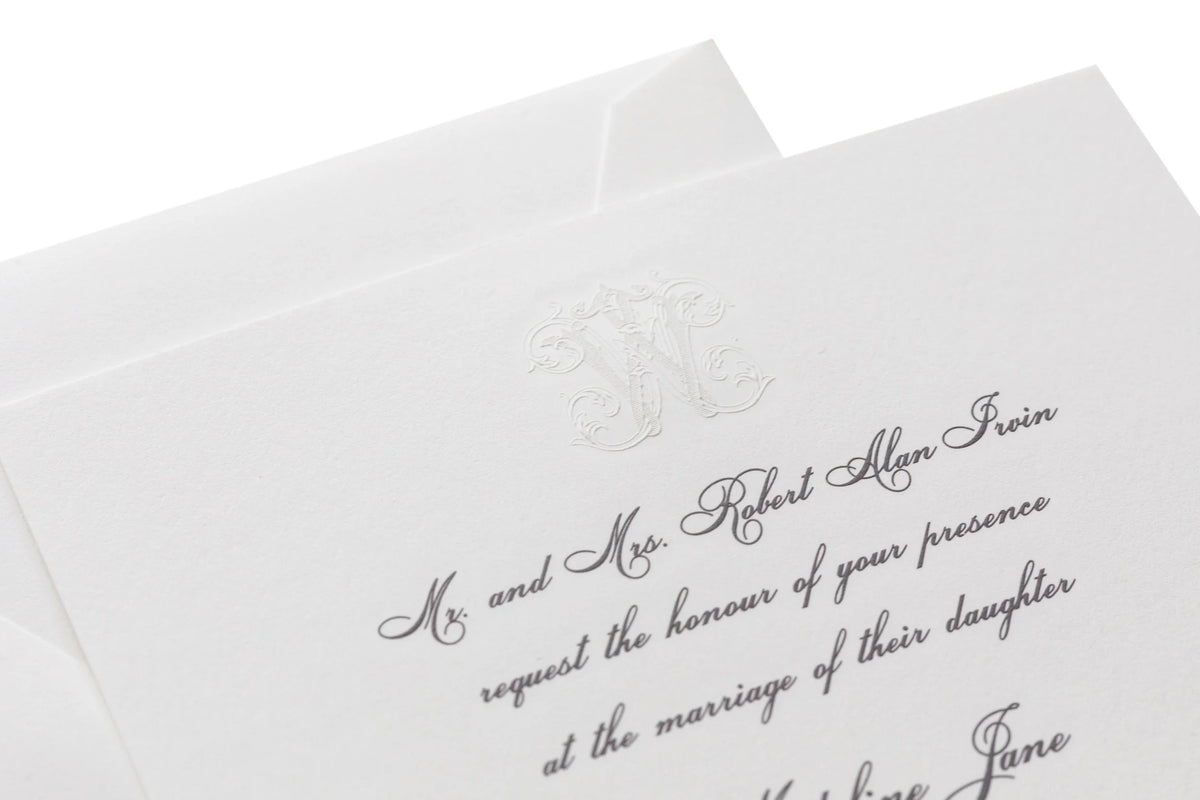 Mr. and Mrs. Robert Alan Irvin
request the honour of your presence
at the marriage of their daughter
Jane